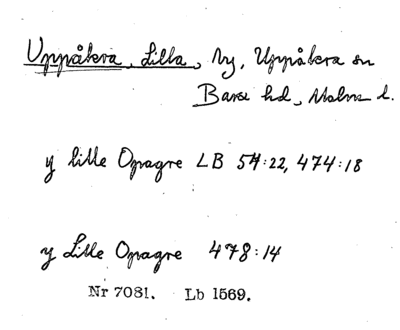 Uppåkra, Lilla, by, Uppåkra sn
Bara hd, Malmö l.
y lille Opagre LB 54:22, 474:18
y Lille Opagre 478:14
Nr 7081. Lb 1569.